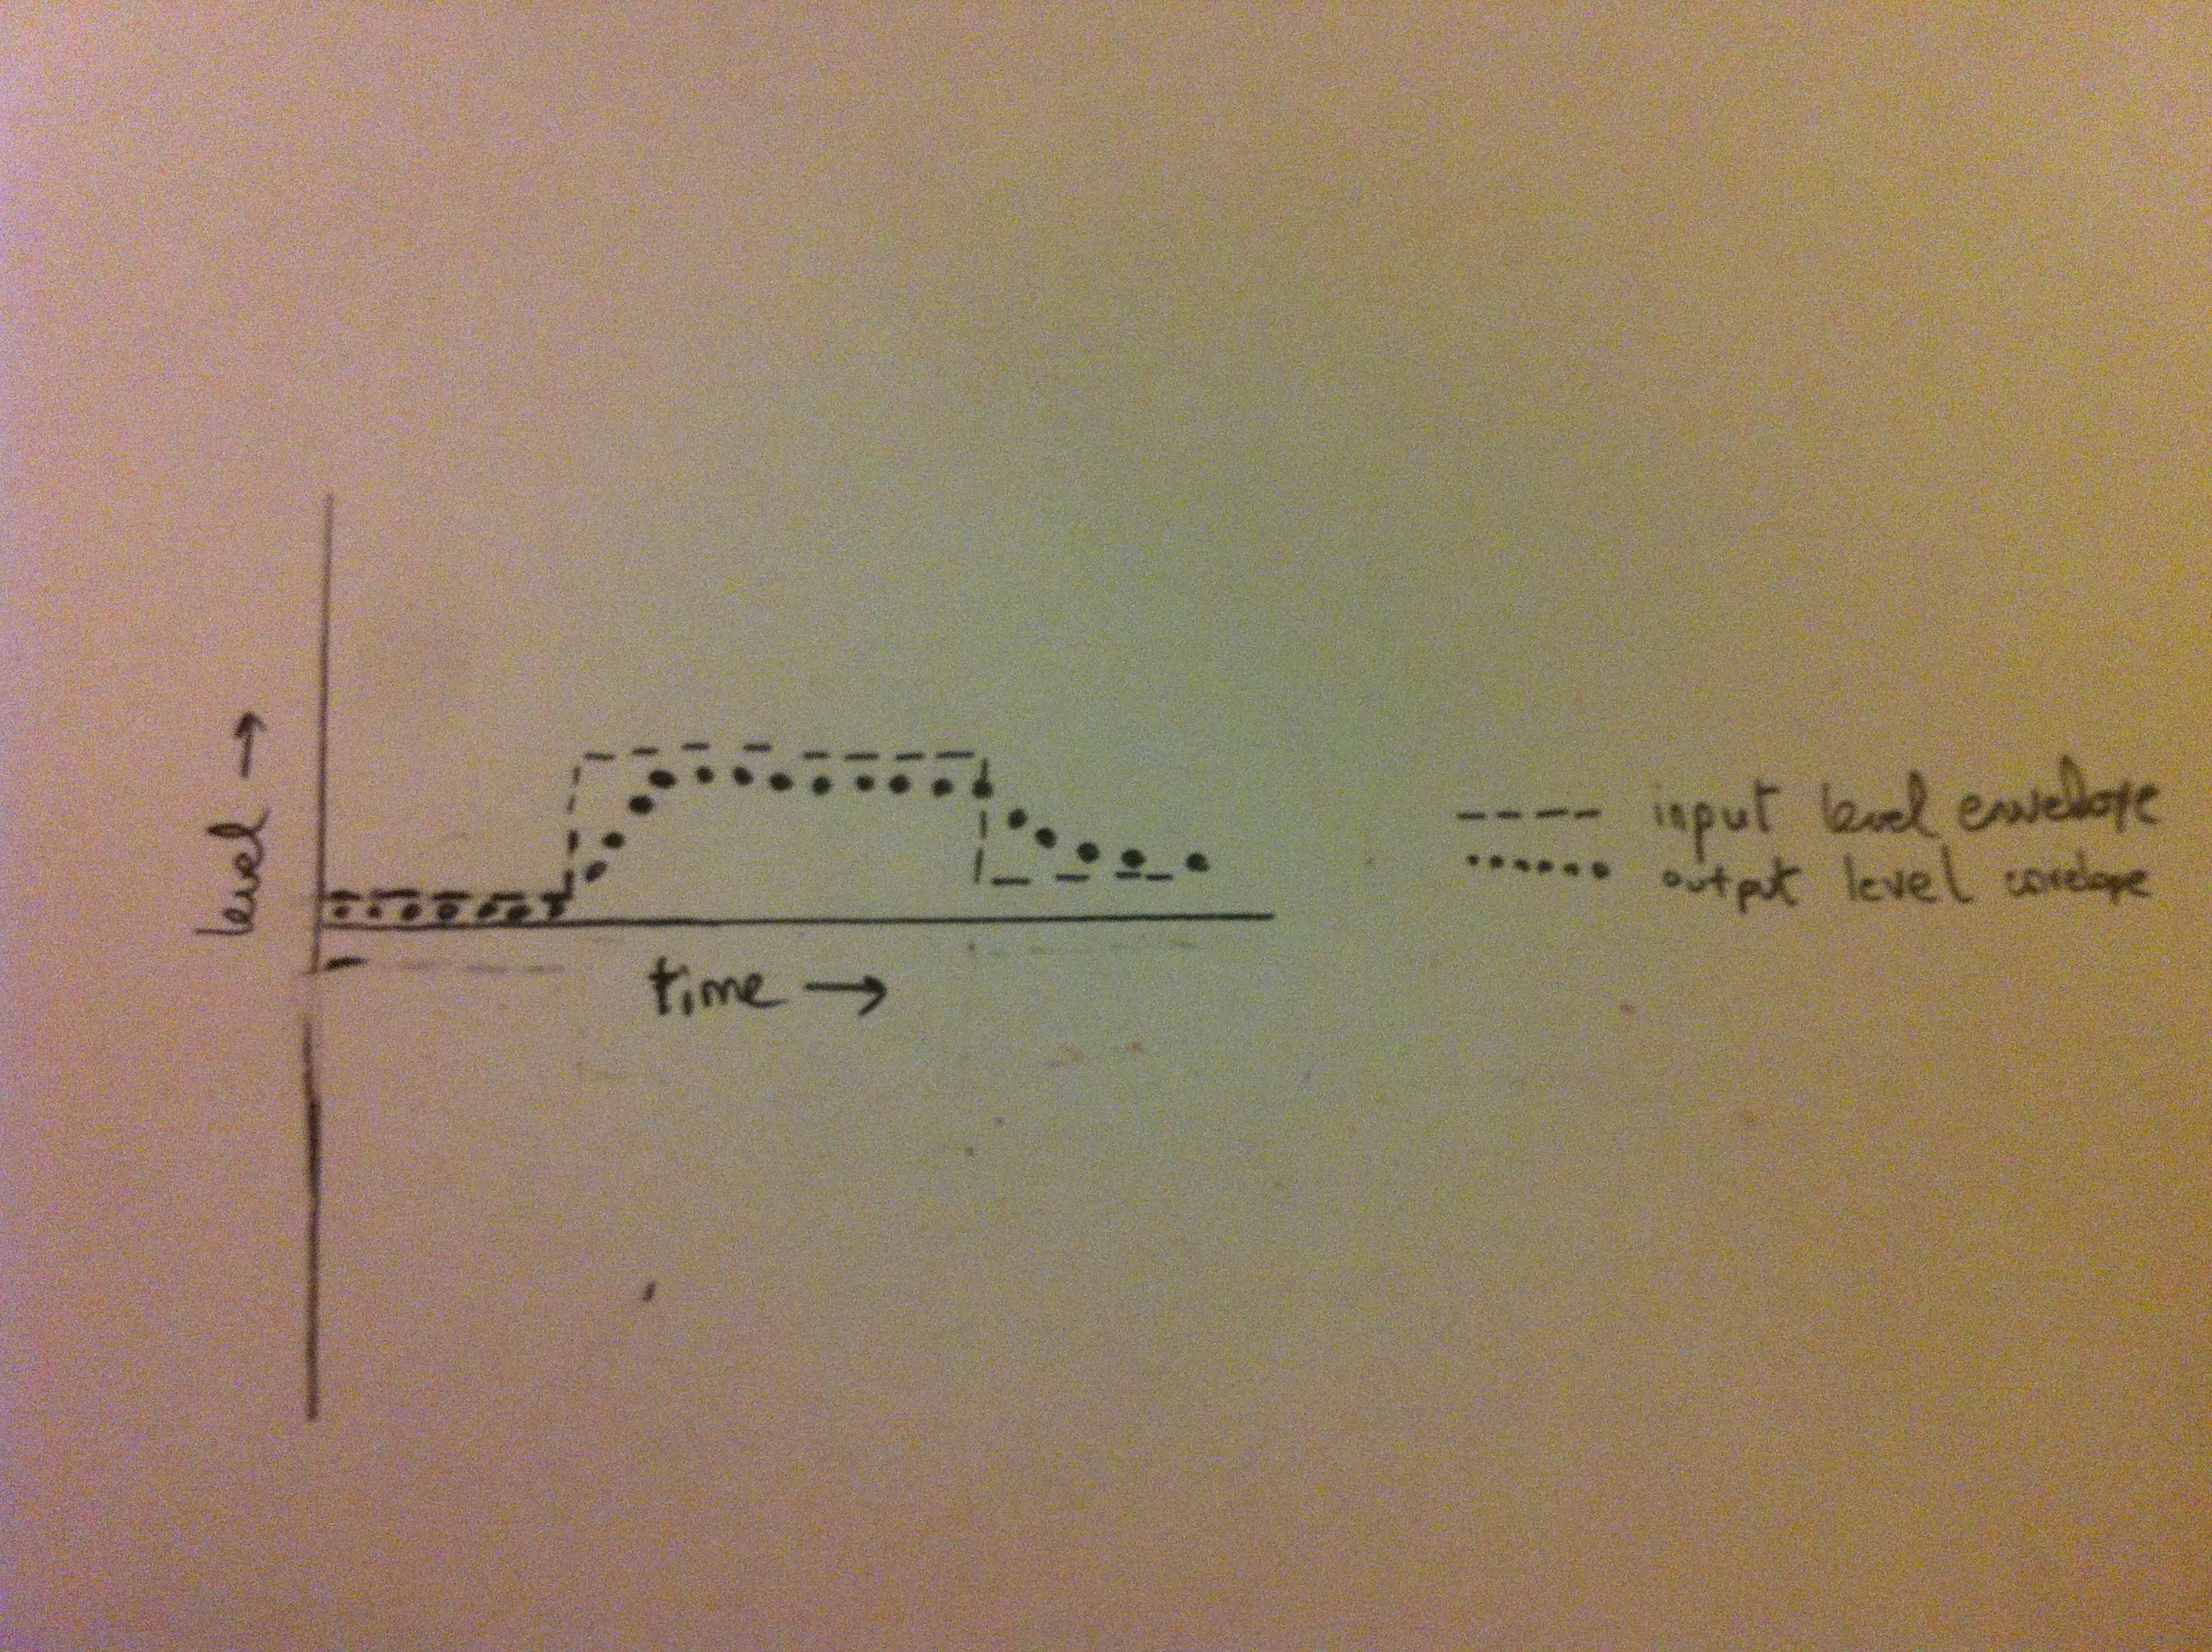 level →
time →
input level envelope
output level envelope